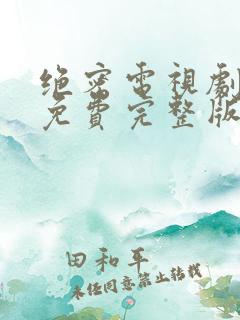 绝密電視劇
免費完整版
田和平
未经同意禁止转载